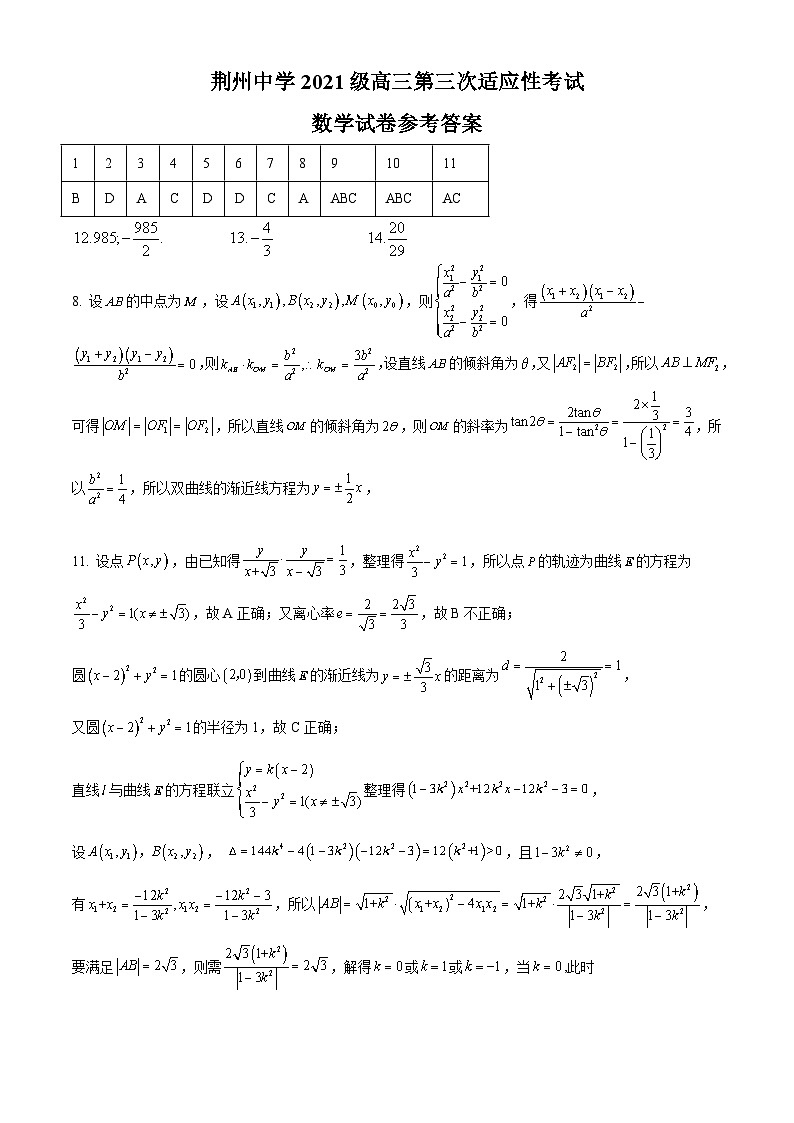 荆州中学 2021 级高三第三次适应性考试
数学试卷参考答案
1 2 3 4 5 6 7 8 9 10 11
B D A C D D C A ABC ABC AC
12.985;−985/2. 13.−4/3 14.20/29
8. 设AB的中点为M，设A(x₁,y₁),B(x₂,y₂),M(x₀,y₀)，则{x₁²/a²−y₁²/b²=0 x₂²/a²−y₂²/b²=0，得(x₁+x₂)(x₁−x₂)/a²−
(y₁+y₂)(y₁−y₂)/b²=0,则k_AB·k_OM=b²/a²,∴k_OM=3b²/a²,设直线AB的倾斜角为θ,又|AF₂|=|BF₂|,所以AB⊥MF₂，
可得|OM|=|OF₁|=|OF₂|，所以直线OM的倾斜角为2θ，则OM的斜率为tan2θ=2tanθ/(1−tan²θ)=(2×1/3)/(1−(1/3)²)=3/4，所
以b²/a²=1/4，所以双曲线的渐近线方程为y=±1/2x，
11. 设点P(x,y)，由已知得y/(x+√3)·y/(x−√3)=1/3，整理得x²/3−y²=1，所以点P的轨迹为曲线E的方程为
x²/3−y²=1(x≠±√3)，故A正确；又离心率e=2/√3=2√3/3，故B不正确；
圆(x−2)²+y²=1的圆心(2,0)到曲线E的渐近线为y=±√3/3x的距离为d=2/√(1²+(±√3)²)=1，
又圆(x−2)²+y²=1的半径为1，故C正确；
直线l与曲线E的方程联立{y=k(x−2) x²/3−y²=1(x≠±√3)整理得(1−3k²)x²+12k²x−12k²−3=0，
设A(x₁,y₁)，B(x₂,y₂)，△=144k⁴−4(1−3k²)(−12k²−3)=12(k²+1)>0，且1−3k²≠0，
有x₁+x₂=−12k²/(1−3k²),x₁x₂=(−12k²−3)/(1−3k²)，所以|AB|=√(1+k²)·√((x₁+x₂)²−4x₁x₂)=√(1+k²)·2√3√(1+k²)/|1−3k²|=2√3(1+k²)/|1−3k²|，
要满足|AB|=2√3，则需2√3(1+k²)/|1−3k²|=2√3，解得k=0或k=1或k=−1，当k=0,此时